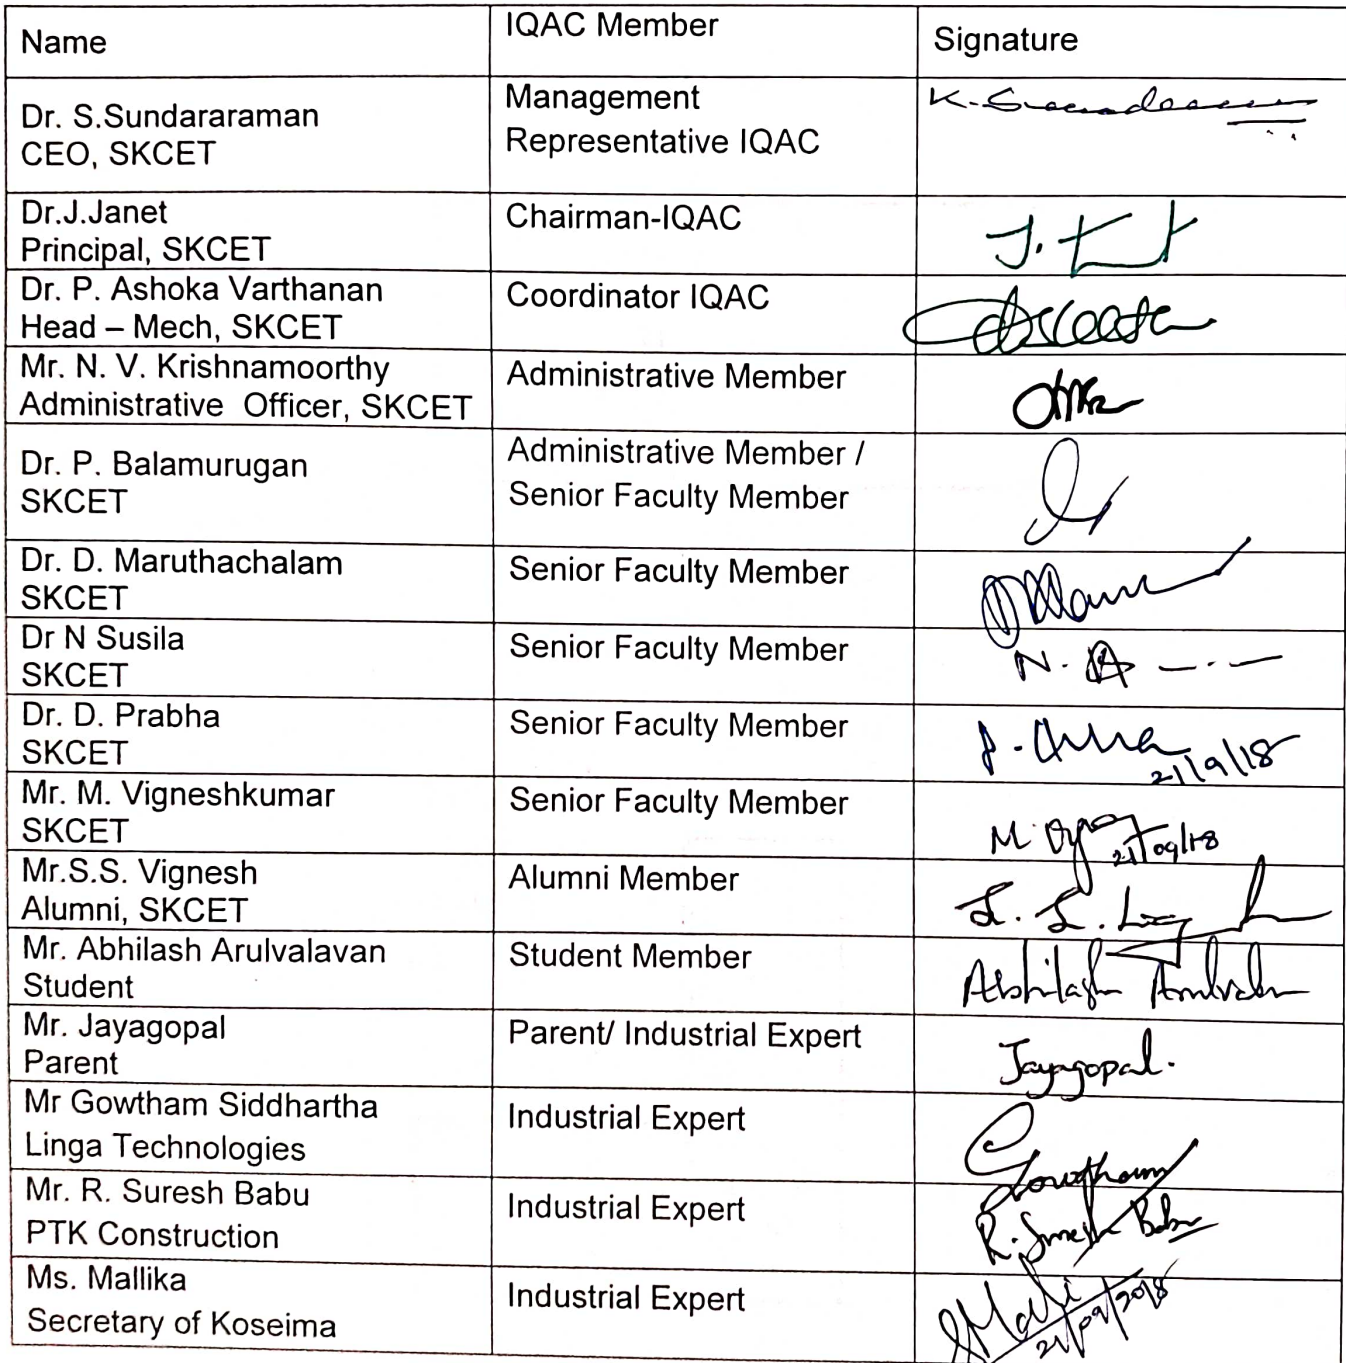 Name
IQAC Member
Signature
Dr. S.Sundararaman
CEO, SKCET
Management
Representative IQAC
Dr.J.Janet
Principal, SKCET
Chairman-IQAC
Dr. P. Ashoka Varthanan
Head – Mech, SKCET
Coordinator IQAC
Mr. N. V. Krishnamoorthy
Administrative Officer, SKCET
Administrative Member
Dr. P. Balamurugan
SKCET
Administrative Member /
Senior Faculty Member
Dr. D. Maruthachalam
SKCET
Senior Faculty Member
Dr N Susila
SKCET
Senior Faculty Member
Dr. D. Prabha
SKCET
Senior Faculty Member
21/9/18
Mr. M. Vigneshkumar
SKCET
Senior Faculty Member
21/09/18
Mr.S.S. Vignesh
Alumni, SKCET
Alumni Member
Mr. Abhilash Arulvalavan
Student
Student Member
Abhilash
Mr. Jayagopal
Parent
Parent/ Industrial Expert
Jayagopal.
Mr Gowtham Siddhartha
Linga Technologies
Industrial Expert
Gowtham
Mr. R. Suresh Babu
PTK Construction
Industrial Expert
R. Suresh Babu
Ms. Mallika
Secretary of Koseima
Industrial Expert
21/09/2018